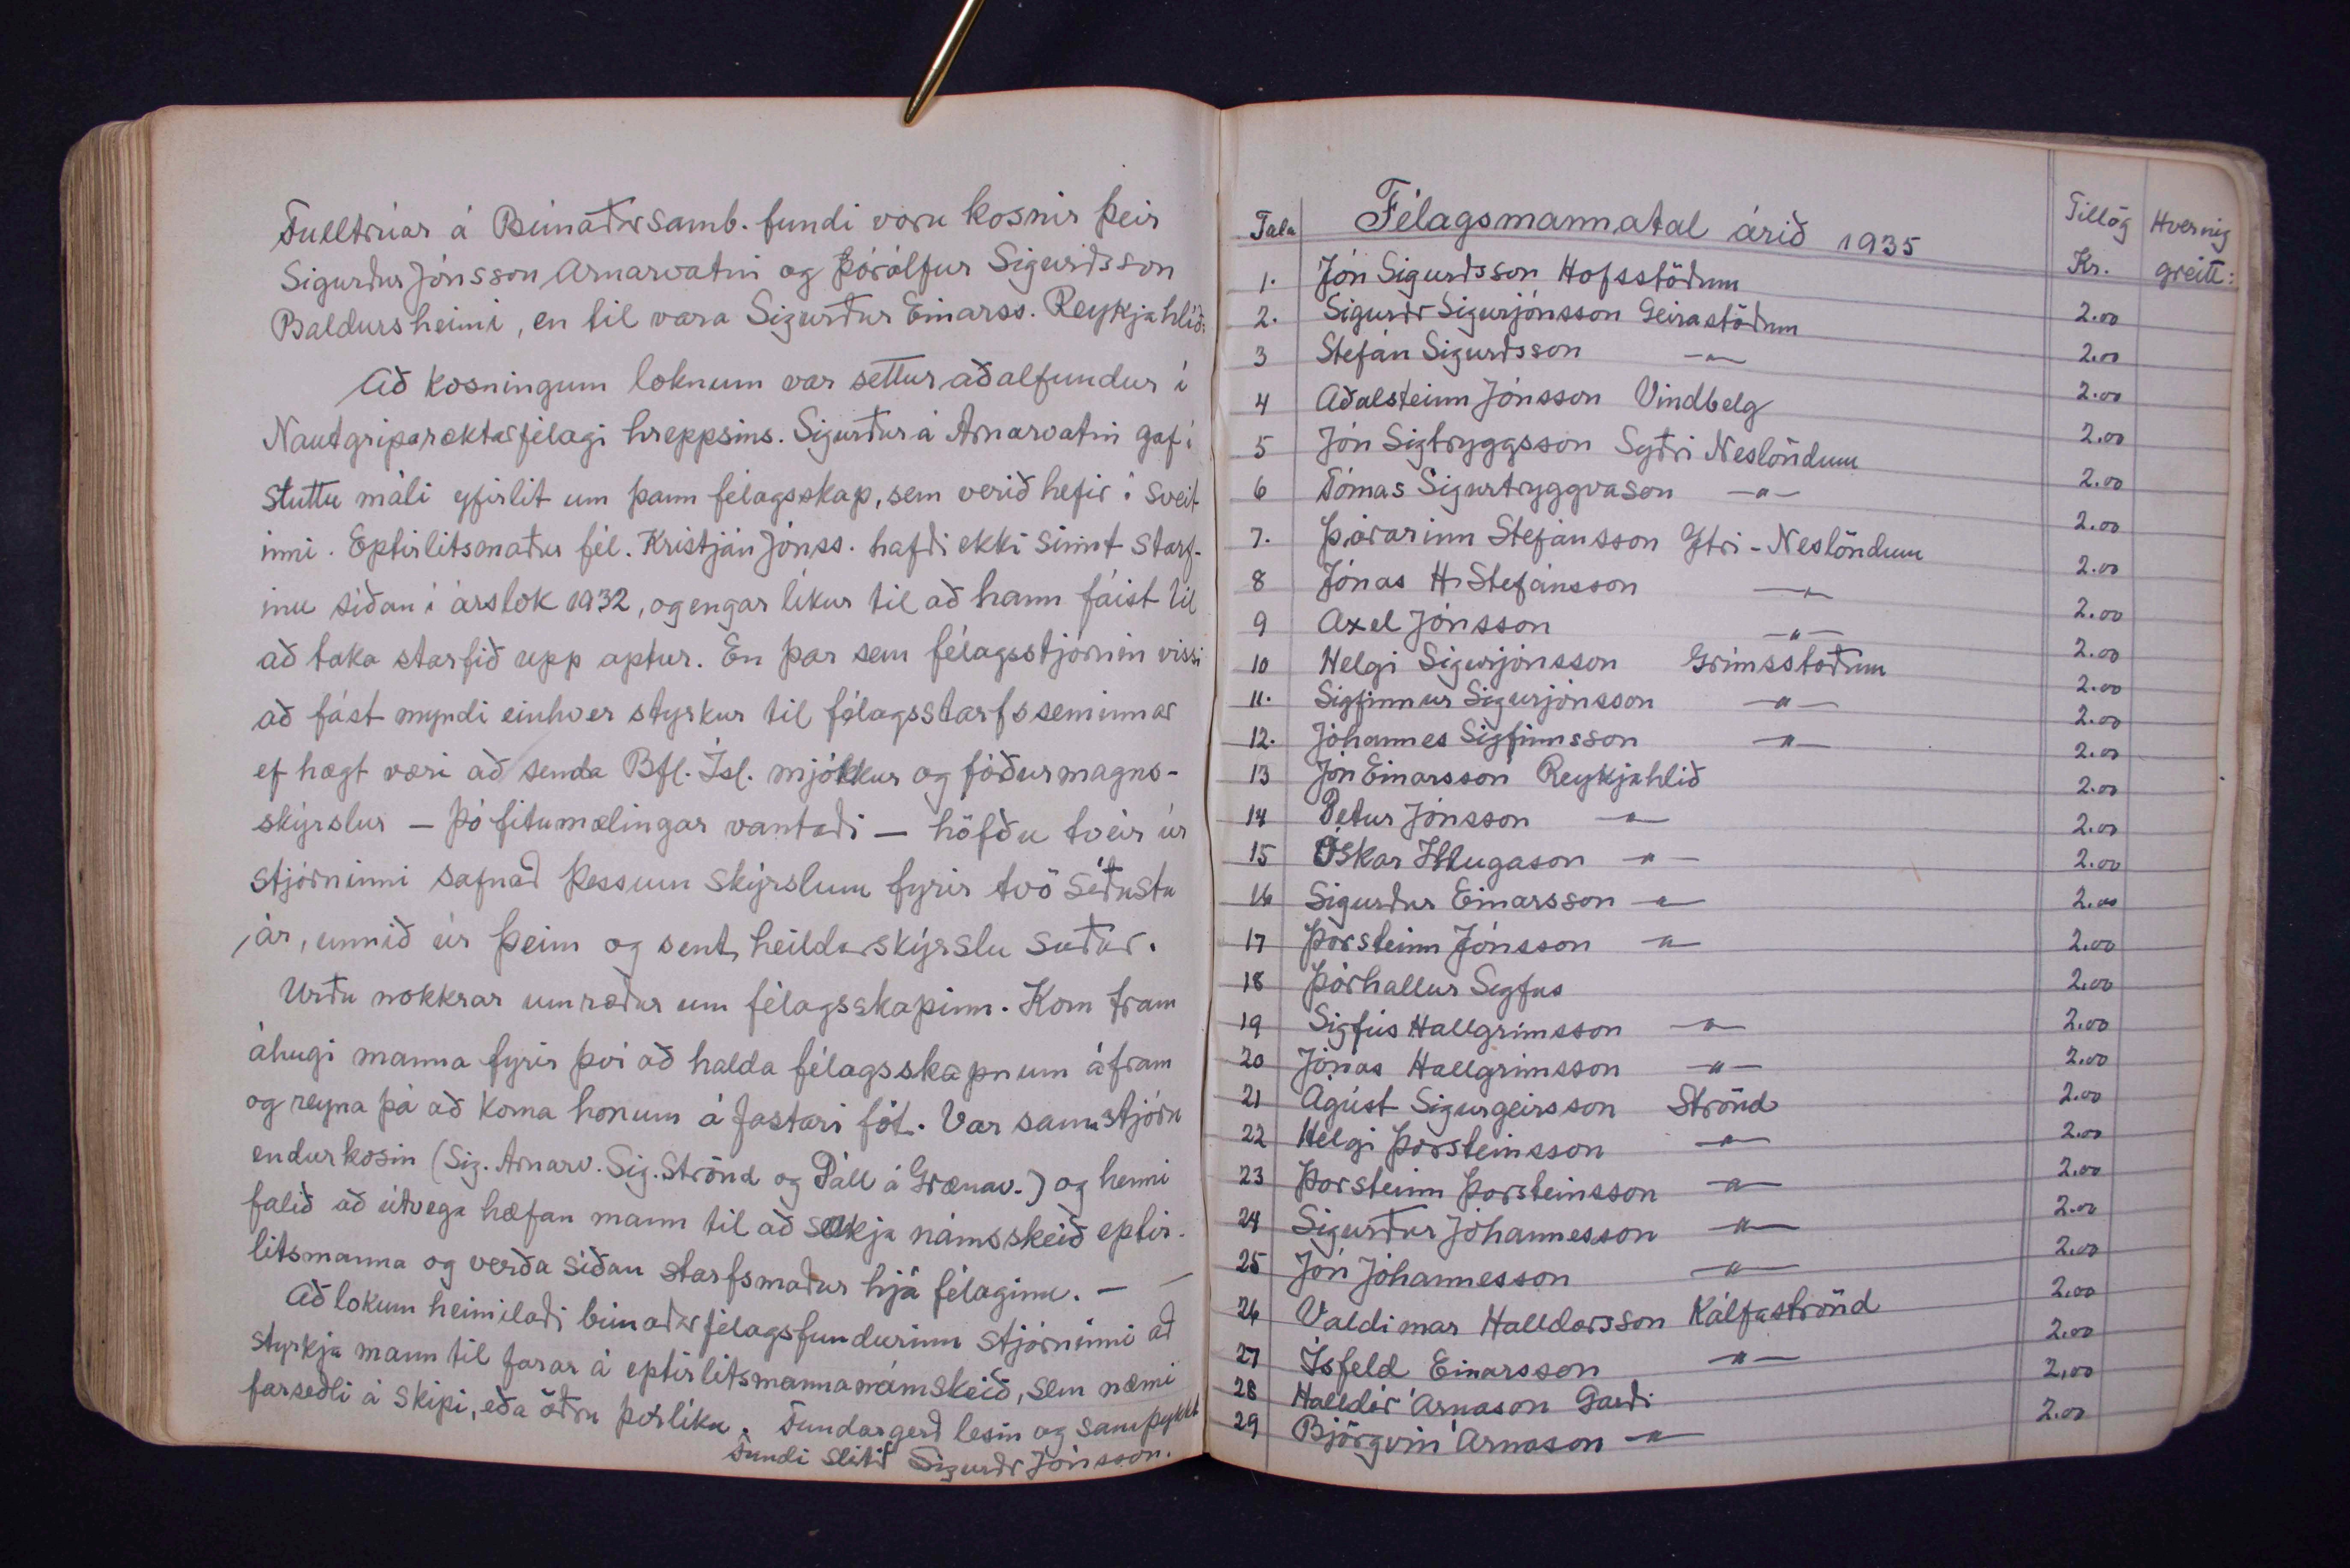 Fulltrúar á Búnaðarsamb. fundi voru kosnir þeir
Sigurður Jónsson Arnarvatni og Þórólfur Sigurðsson
Baldursheimi, en til vara Sigurður Einarss. Reykjahlíð.
Að kosningum loknum var settur aðalfundur í
Nautgriparæktarfélagi hreppsins. Sigurður á Arnarvatni gaf í
stuttu máli yfirlit um þann félagsskap, sem verið hefir í sveit-
inni. Eptirlitsmaður fél. Kristján Jónss. hafði ekki sinnt starf-
inu síðan í árslok 1932, og engar líkur til að hann fáist til
að taka starfið upp aptur. En þar sem félagsstjórnin vissi
að fást myndi einhver styrkur til félagsstarfsseminnar
ef hægt væri að senda Bfl. Ísl. mjólkur og fóðurmagns-
skýrslur - þó fitumælingar vantaði - höfðu tveir úr
stjórninni safnað þessum skýrslum fyrir tvö síðustu
ár, unnið úr þeim og sent heildarskýrslu suður.
Urðu nokkrar umræður um félagsskapinn. Kom fram
áhugi manna fyrir því að halda félagsskapnum áfram
og reyna þá að koma honum á fastari fót. Var sama stjórn
endurkosin (Sig. Arnarv. Sig. Strönd og Páll á Grænav.) og henni
falið að útvega hæfan mann til að sækja námsskeið eptir-
litsmanna og verða síðan starfsmaður hjá félaginu. -
Að lokum heimilaði búnaðarfélagsfundurinn stjórninni að
styrkja mann til farar á eptirlitsmannanámskeið, sem næmi
farseðli á skipi, eða öðru þvílíku. Fundargerð lesin og samþykkt
Fundi slitið Sigurðr Jónsson.
Tala Félagsmannatal árið 1935 Tillög Kr. Hvernig greitt:
1. Jón Sigurðsson Hofsstöðum 2.00
2. Sigurðr Sigurjónsson Geirastöðum 2.00
3 Stefán Sigurðsson -"- 2.00
4 Aðalsteinn Jónsson Vindbelg 2.00
5 Jón Sigtryggsson Syðri Neslöndum 2.00
6 Tómas Sigurtryggvason -"- 2.00
7. Þórarinn Stefánsson Ytri-Neslöndum 2.00
8 Jónas H. Stefánsson -"- 2.00
9 Axel Jónsson -"- 2.00
10 Helgi Sigurjónsson Grímsstöðum 2.00
11. Sigfinnur Sigurjónsson -"- 2.00
12. Jóhannes Sigfinnsson -"- 2.00
13 Jón Einarsson Reykjahlíð 2.00
14 Pétur Jónsson -"- 2.00
15 Óskar Illugason -"- 2.00
16 Sigurður Einarsson -"- 2.00
17 Þorsteinn Jónsson -"- 2.00
18 Þórhallur Sigfús 2.00
19 Sigfús Hallgrímsson -"- 2.00
20 Jónas Hallgrímsson -"- 2.00
21 Ágúst Sigurgeirsson Strönd 2.00
22 Helgi Þorsteinsson -"- 2.00
23 Þorsteinn Þorsteinsson -"- 2.00
24 Sigurður Jóhannesson -"- 2.00
25 Jón Jóhannesson -"- 2.00
26 Valdimar Halldórsson Kálfaströnd 2.00
27 Ísfeld Einarsson -"- 2.00
28 Halldór Árnason Garði 2.00
29 Björgvin Árnason -"- 2.00